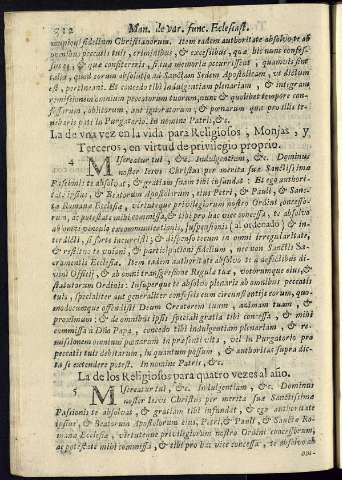 312 Man. de var. func. Eclesiast.
munioni fidelium Christianorum. Item eadem authoritate absolvo te ab
omnibus peccatis tuis, criminibus, & excessibus, quæ hic nunc confes-
sus es, & quæ confitereris, si tua memoria occurrissent, quamvis sint
talia, quod eorum absolutio ad Sanctam Sedem Apostolicam, ut dictum
est, pertineant. Et concedo tibi Indulgentiam plenariam, & integram
remissionem omnium peccatorum tuorum, nunc & quolibet tempore con-
fessorum, oblitorum, aut ignoratorum; & pœnarum quas pro illis te-
nebaris pati in Purgatorio. In nomine Patris, &c.
La de vna vez en la vida para Religiosos, Monjas, y
Terceros, en virtud de privilegio proprio.
4 Misereatur tui, &c. Indulgentiam, &c. Dominus
noster Iesus Christus per merita suæ Sanctissimæ
Passionis te absolvat, & gratiam suam tibi infundat: Et ego authori-
tate ipsius, & Beatorum Apostolorum, eius Petri, & Pauli, & Sanctæ
Romanæ Ecclesiæ, virtuteque privilegiorum nostro Ordini concesso-
rum, ac potestate mihi commissa, & tibi pro hac vice concessa, te absolvo
ab omni vinculo excommunicationis, suspensionis (si ordenado) & in-
terdicti, si forte incurristi; & dispenso tecum in omni irregularitate,
& restituo te unioni, & participationi fidelium, nec non Sanctis Sa-
cramentis Ecclesiæ. Item eadem authoritate absolvo te à defectibus di-
vini Officij, & ab omni transgressione Regulæ tuæ, votorumque eius, &
statutorum Ordinis: Insuperque te absolvo plenarie ab omnibus peccatis
tuis, specialiter aut generaliter confessis cum circunstantijs eorum, quo-
modocumque offendisti Deum Creatorem tuum, animam tuam, &
proximum: & de omnibus ipsis speciali gratia tibi concessa, & mihi
commissa à Dño Papa, concedo tibi Indulgentiam plenariam, & re-
missionem omnium pœnarum in præsenti vita, vel in Purgatorio pro
peccatis tuis debitarum, in quantum possum, & authoritas supra dic-
ta se extendere potest. In nomine Patris, &c.
La de los Religiosos para quatro vezes al año.
5 Misereatur tui, &c. Indulgentiam, &c. Dominus
noster Iesus Christus per merita suæ Sanctissimæ
Passionis te absolvat, & gratiam tibi infundat, & ego authoritate
ipsius, & Beatorum Apostolorum eius, Petri, & Pauli, & Sanctæ Ro-
manæ Ecclesiæ, virtuteque privilegiorum nostro Ordini concessorum,
ac potestate mihi commissa, & tibi pro hac vice concessa, te absolvo ab
om-